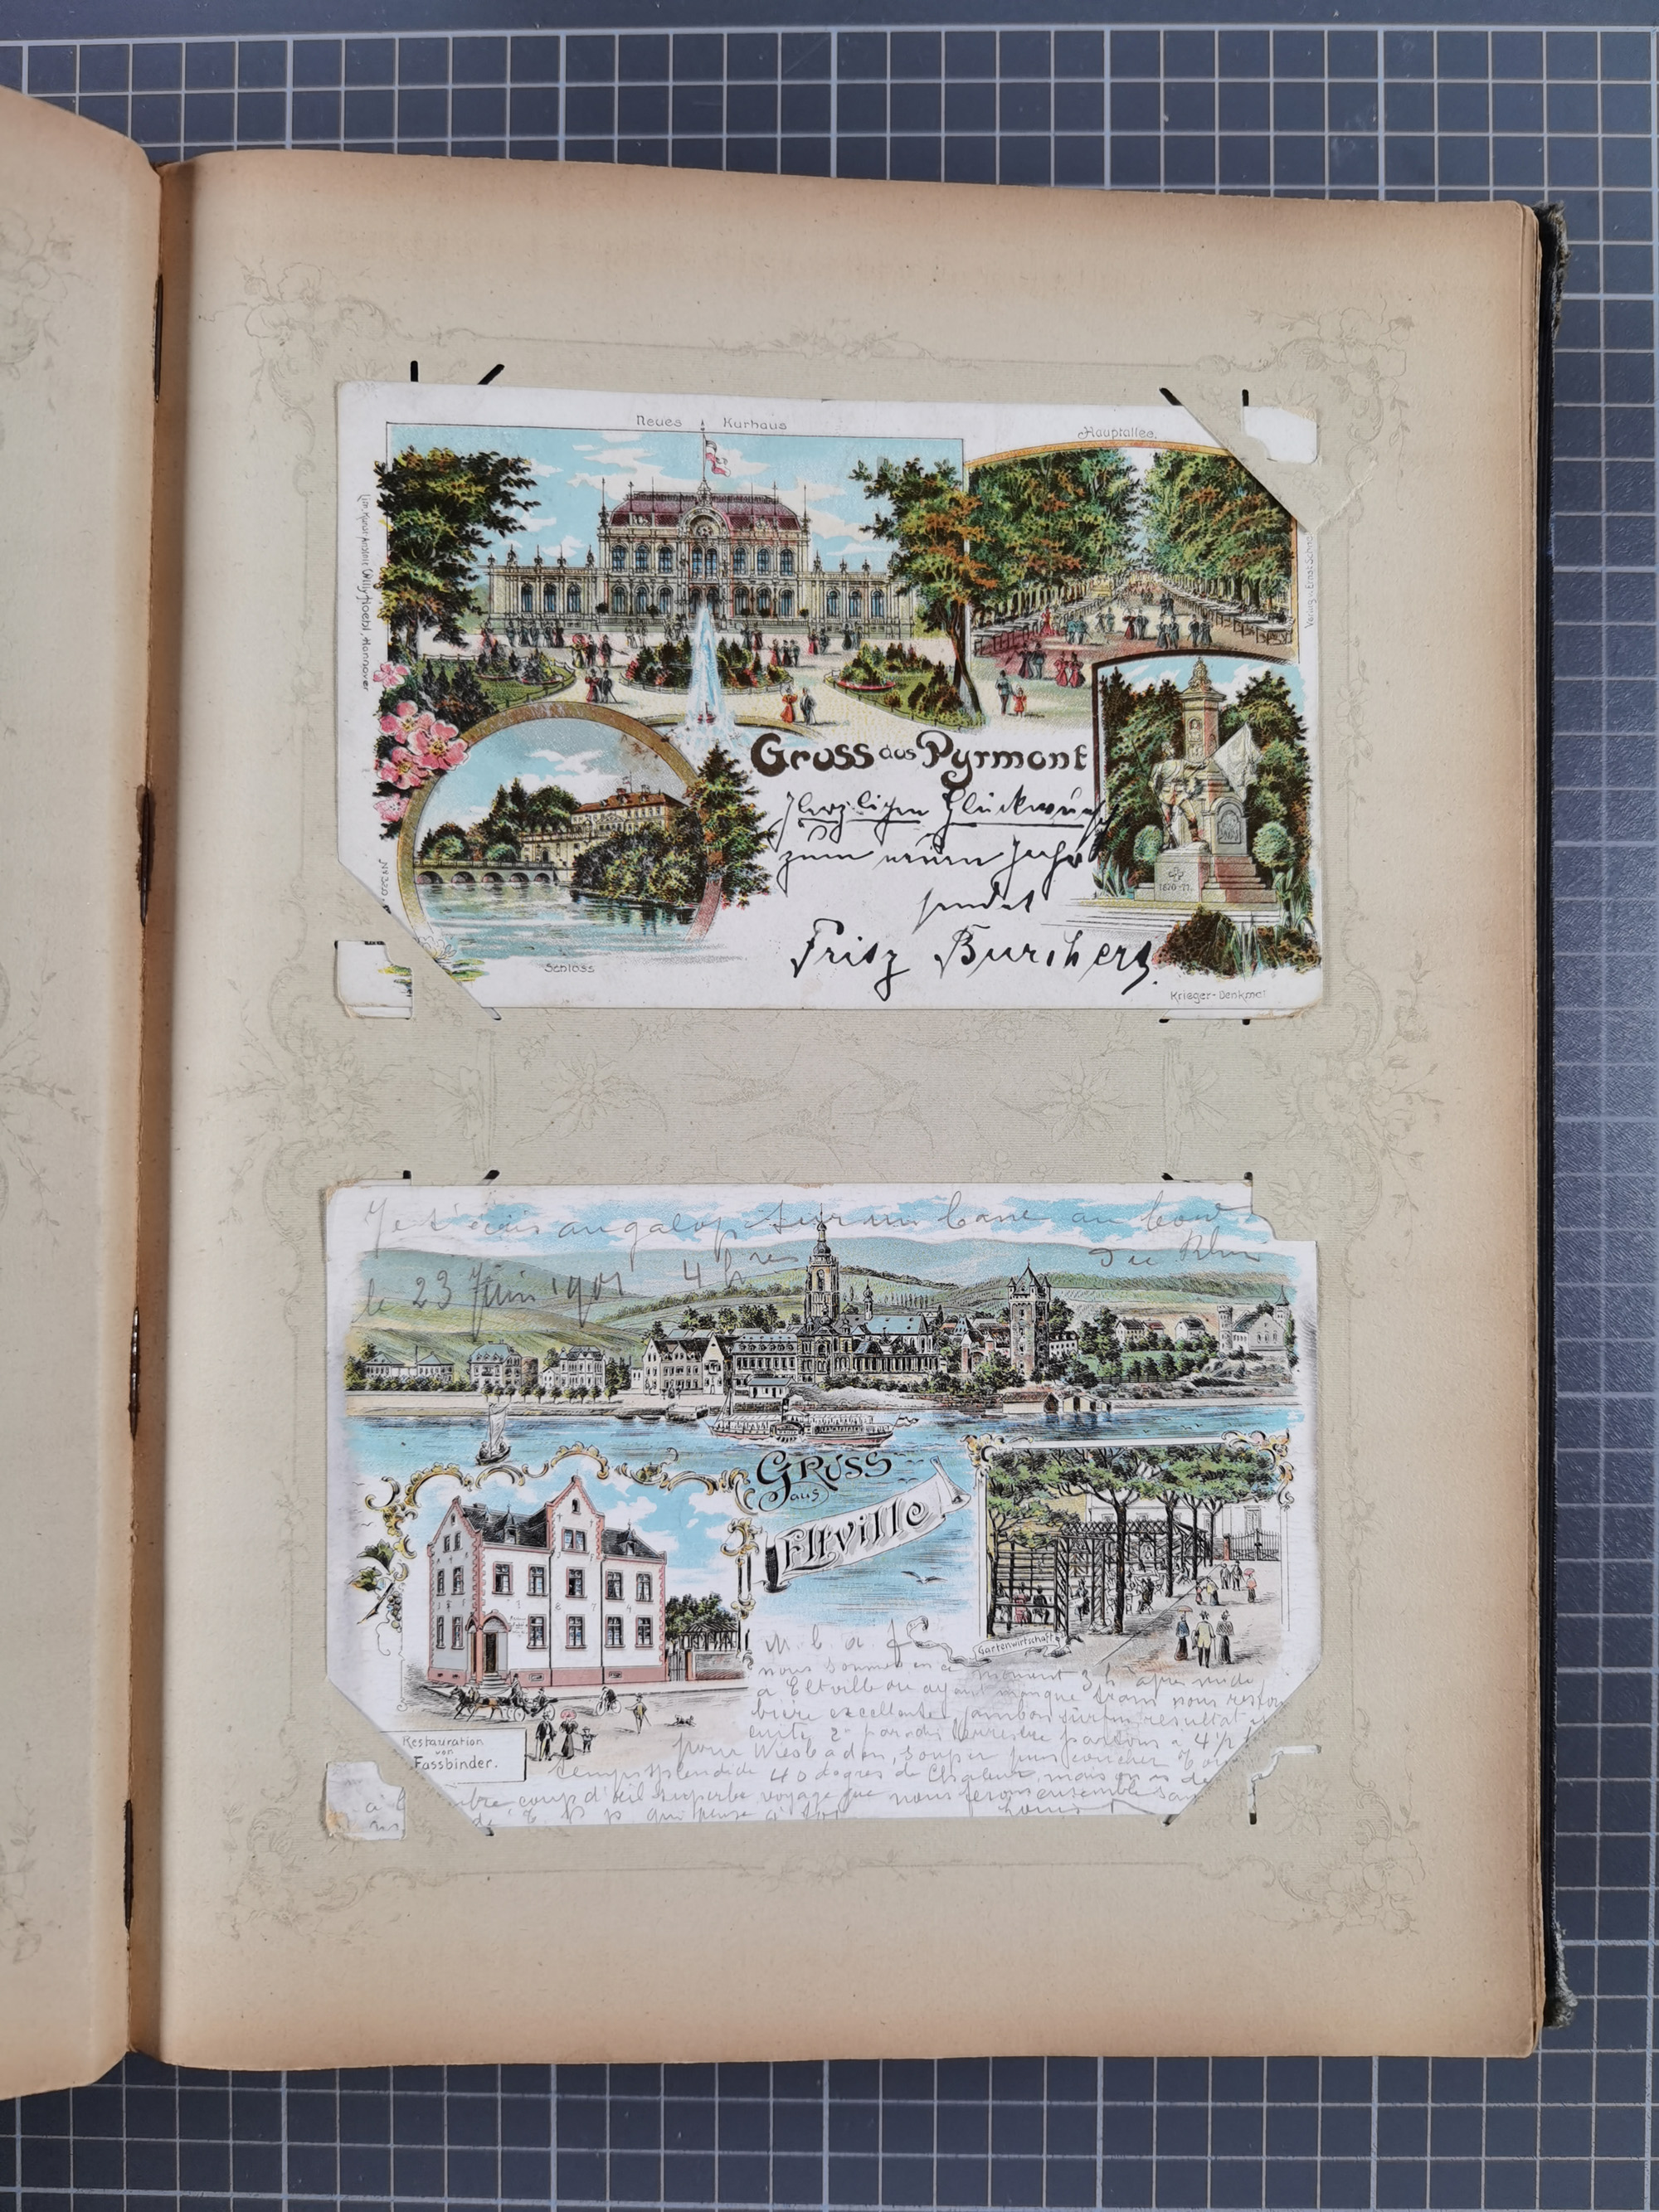 Neues Kurhaus
Hauptallee.
Lith. Kunst-Anstalt Willy Hoebl, Hannover
Verlag v. Ernst Schn
Gruss aus Pyrmont
Herzlichen Glückwunsch
zum neuen Jahr
sendet
Fritz Burchertz.
1870-71.
Schloss
Krieger-Denkmal
Je t'écris au galop sur un banc au bord
du Rhin
le 23 Juin 1901 4 hres
Gruss
aus
Eltville
Gartenwirtschaft
Restauration
von
Fassbinder.
M. b. a.
nous sommes en ce moment 3 h après midi
a Eltville ou ayant manqué train nous
bière excellente, jambon résultat
2 partons a 4 1/2
pour Wiesbaden, souper puis coucher
temps splendide 40 degrés de Chaleur, mais
coup d'oeil superbe, voyage que nous ferons ensemble
qui pense à toi